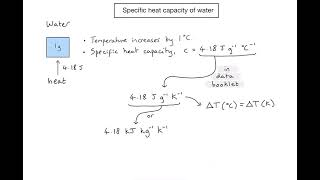 Specific heat capacity of water
Water
1g
4.18 J
heat
• Temperature increases by 1°C
• Specific heat capacity, c = 4.18 J g⁻¹ °C⁻¹
in data booklet
4.18 J g⁻¹ K⁻¹
ΔT(°C) = ΔT(K)
or
4.18 kJ kg⁻¹ K⁻¹